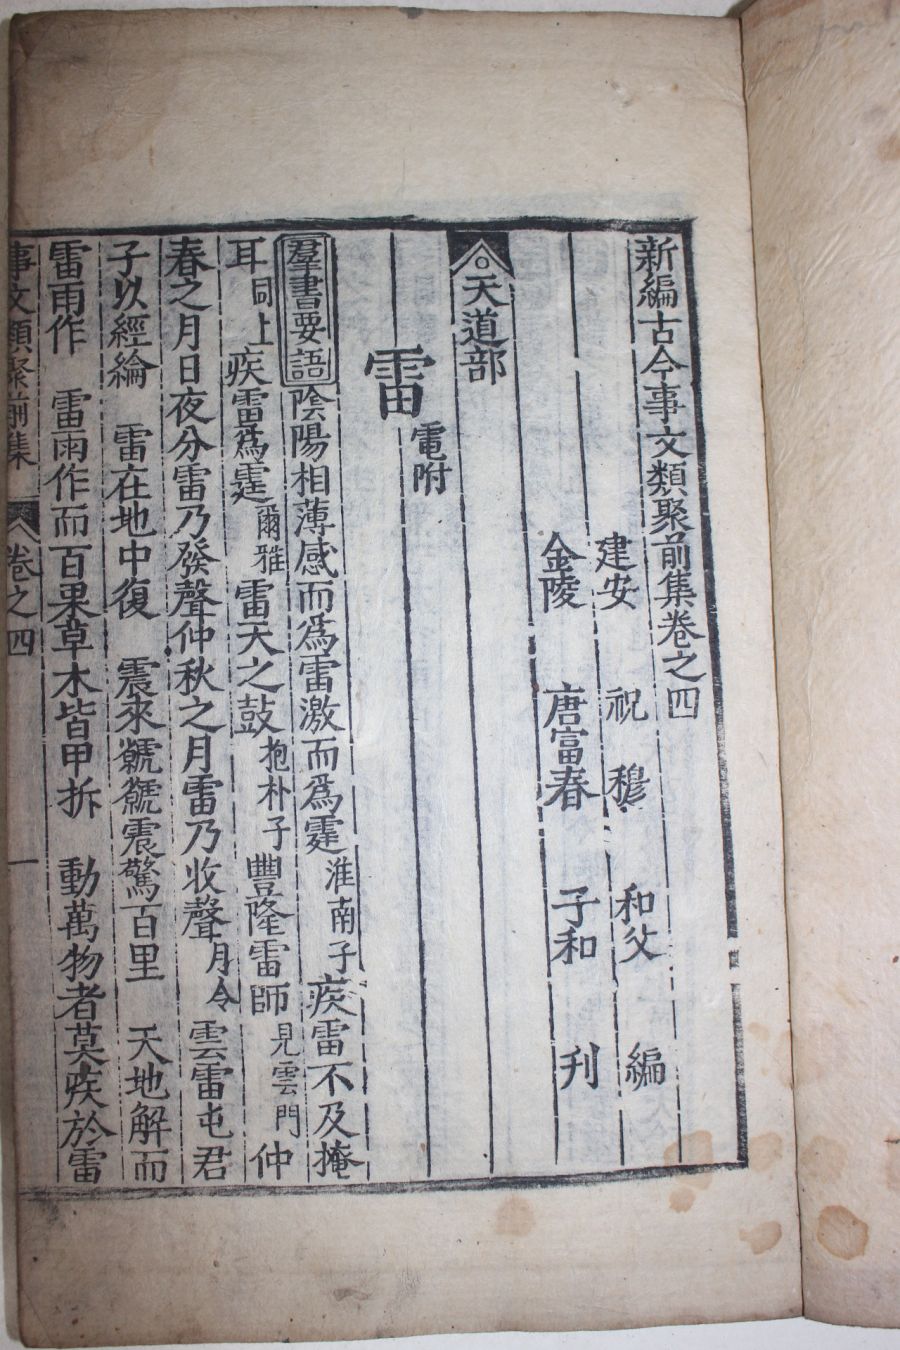 新編古今事文類聚前集卷之四
建安 祝穆 和父 編
金陵 唐富春 子和 刊
○天道部
雷 電附
羣書要語 陰陽相薄感而爲雷激而爲霆淮南子疾雷不及掩
耳同上疾雷爲霆爾雅雷天之鼓抱朴子豐隆雷師見雲門仲
春之月日夜分雷乃發聲仲秋之月雷乃收聲月令雲雷屯君
子以經綸 雷在地中復 震來虩虩震驚百里 天地解而
雷雨作 雷雨作而百果草木皆甲拆 動萬物者莫疾於雷
事文類聚前集 卷之四 一